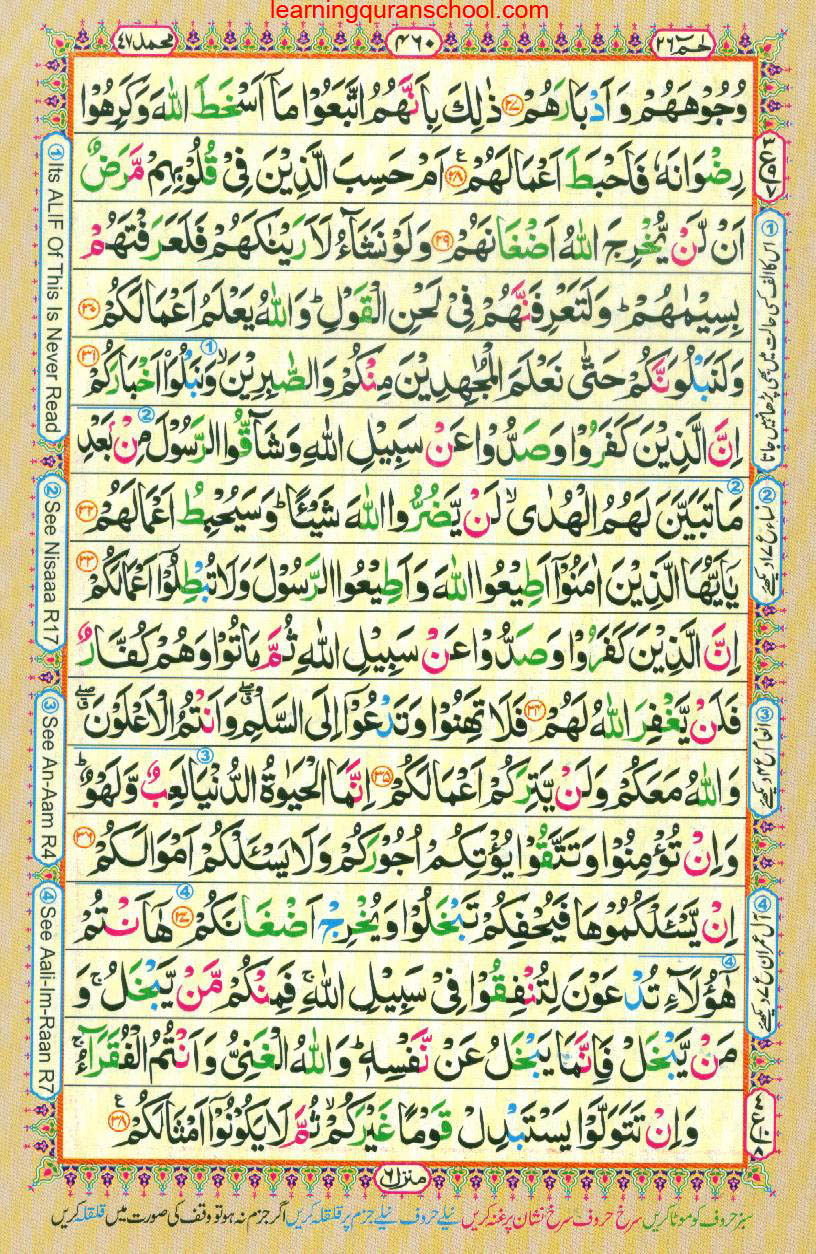 learningquranschool.com
حٰمٓ ٢٦
٤٦٠
محمد ٤٧
وُجُوْهَهُمْ وَ اَدْبَارَهُمْ ﴿٢٧﴾ ذٰلِكَ بِاَنَّهُمُ اتَّبَعُوْا مَاۤ اَسْخَطَ اللّٰهَ وَكَرِهُوْا
رِضْوَانَهٗ فَاَحْبَطَ اَعْمَالَهُمْ ﴿٢٨﴾ اَمْ حَسِبَ الَّذِيْنَ فِيْ قُلُوْبِهِمْ مَّرَضٌ
اَنْ لَّنْ يُّخْرِجَ اللّٰهُ اَضْغَانَهُمْ ﴿٢٩﴾ وَلَوْ نَشَآءُ لَاَرَيْنٰكَهُمْ فَلَعَرَفْتَهُمْ
بِسِيْمٰهُمْ ؕ وَلَتَعْرِفَنَّهُمْ فِيْ لَحْنِ الْقَوْلِ ؕ وَاللّٰهُ يَعْلَمُ اَعْمَالَكُمْ ﴿٣٠﴾
وَلَنَبْلُوَنَّكُمْ حَتّٰى نَعْلَمَ الْمُجٰهِدِيْنَ مِنْكُمْ وَالصّٰبِرِيْنَ ۙ وَنَبْلُوَا۟ اَخْبَارَكُمْ ﴿٣١﴾
اِنَّ الَّذِيْنَ كَفَرُوْا وَصَدُّوْا عَنْ سَبِيْلِ اللّٰهِ وَشَآقُّوا الرَّسُوْلَ مِنْۢ بَعْدِ
مَا تَبَيَّنَ لَهُمُ الْهُدٰى ۙ لَنْ يَّضُرُّوا اللّٰهَ شَيْـًٔا ؕ وَسَيُحْبِطُ اَعْمَالَهُمْ ﴿٣٢﴾
يٰۤاَيُّهَا الَّذِيْنَ اٰمَنُوْۤا اَطِيْعُوا اللّٰهَ وَاَطِيْعُوا الرَّسُوْلَ وَلَا تُبْطِلُوْۤا اَعْمَالَكُمْ ﴿٣٣﴾
اِنَّ الَّذِيْنَ كَفَرُوْا وَصَدُّوْا عَنْ سَبِيْلِ اللّٰهِ ثُمَّ مَاتُوْا وَهُمْ كُفَّارٌ
فَلَنْ يَّغْفِرَ اللّٰهُ لَهُمْ ﴿٣٤﴾ فَلَا تَهِنُوْا وَتَدْعُوْۤا اِلَى السَّلْمِ ۖ وَاَنْتُمُ الْاَعْلَوْنَ ۖ
وَاللّٰهُ مَعَكُمْ وَلَنْ يَّتِرَكُمْ اَعْمَالَكُمْ ﴿٣٥﴾ اِنَّمَا الْحَيٰوةُ الدُّنْيَا لَعِبٌ وَّلَهْوٌ ؕ
وَاِنْ تُؤْمِنُوْا وَتَتَّقُوْا يُؤْتِكُمْ اُجُوْرَكُمْ وَلَا يَسْـَٔلْكُمْ اَمْوَالَكُمْ ﴿٣٦﴾
اِنْ يَّسْـَٔلْكُمُوْهَا فَيُحْفِكُمْ تَبْخَلُوْا وَيُخْرِجْ اَضْغَانَكُمْ ﴿٣٧﴾ هٰۤاَنْتُمْ
هٰۤؤُلَآءِ تُدْعَوْنَ لِتُنْفِقُوْا فِيْ سَبِيْلِ اللّٰهِ ۚ فَمِنْكُمْ مَّنْ يَّبْخَلُ ۚ وَ
مَنْ يَّبْخَلْ فَاِنَّمَا يَبْخَلُ عَنْ نَّفْسِهٖ ؕ وَاللّٰهُ الْغَنِيُّ وَاَنْتُمُ الْفُقَرَآءُ ۚ
وَاِنْ تَتَوَلَّوْا يَسْتَبْدِلْ قَوْمًا غَيْرَكُمْ ۙ ثُمَّ لَا يَكُوْنُوْۤا اَمْثَالَكُمْ ﴿٣٨﴾
① Its ALIF Of This Is Never Read
② See Nisaaa R17
③ See An-Aam R4
④ See Aali-Im-Raan R7
① اس کا الف کسی حالت میں بھی پڑھا نہیں جاتا
② نساء ع ١٧ دیکھئے
③ انعام ع ٤ دیکھئے
④ آل عمران ع ٧ دیکھئے
منزل ٦
سبز حروف کو موٹا کریں سرخ حروف سرخ نشان پر غنہ کریں نیلے حروف نیلے جزم پر قلقلہ کریں اگر جزم نہ ہو تو وقف کی صورت میں قلقلہ کریں